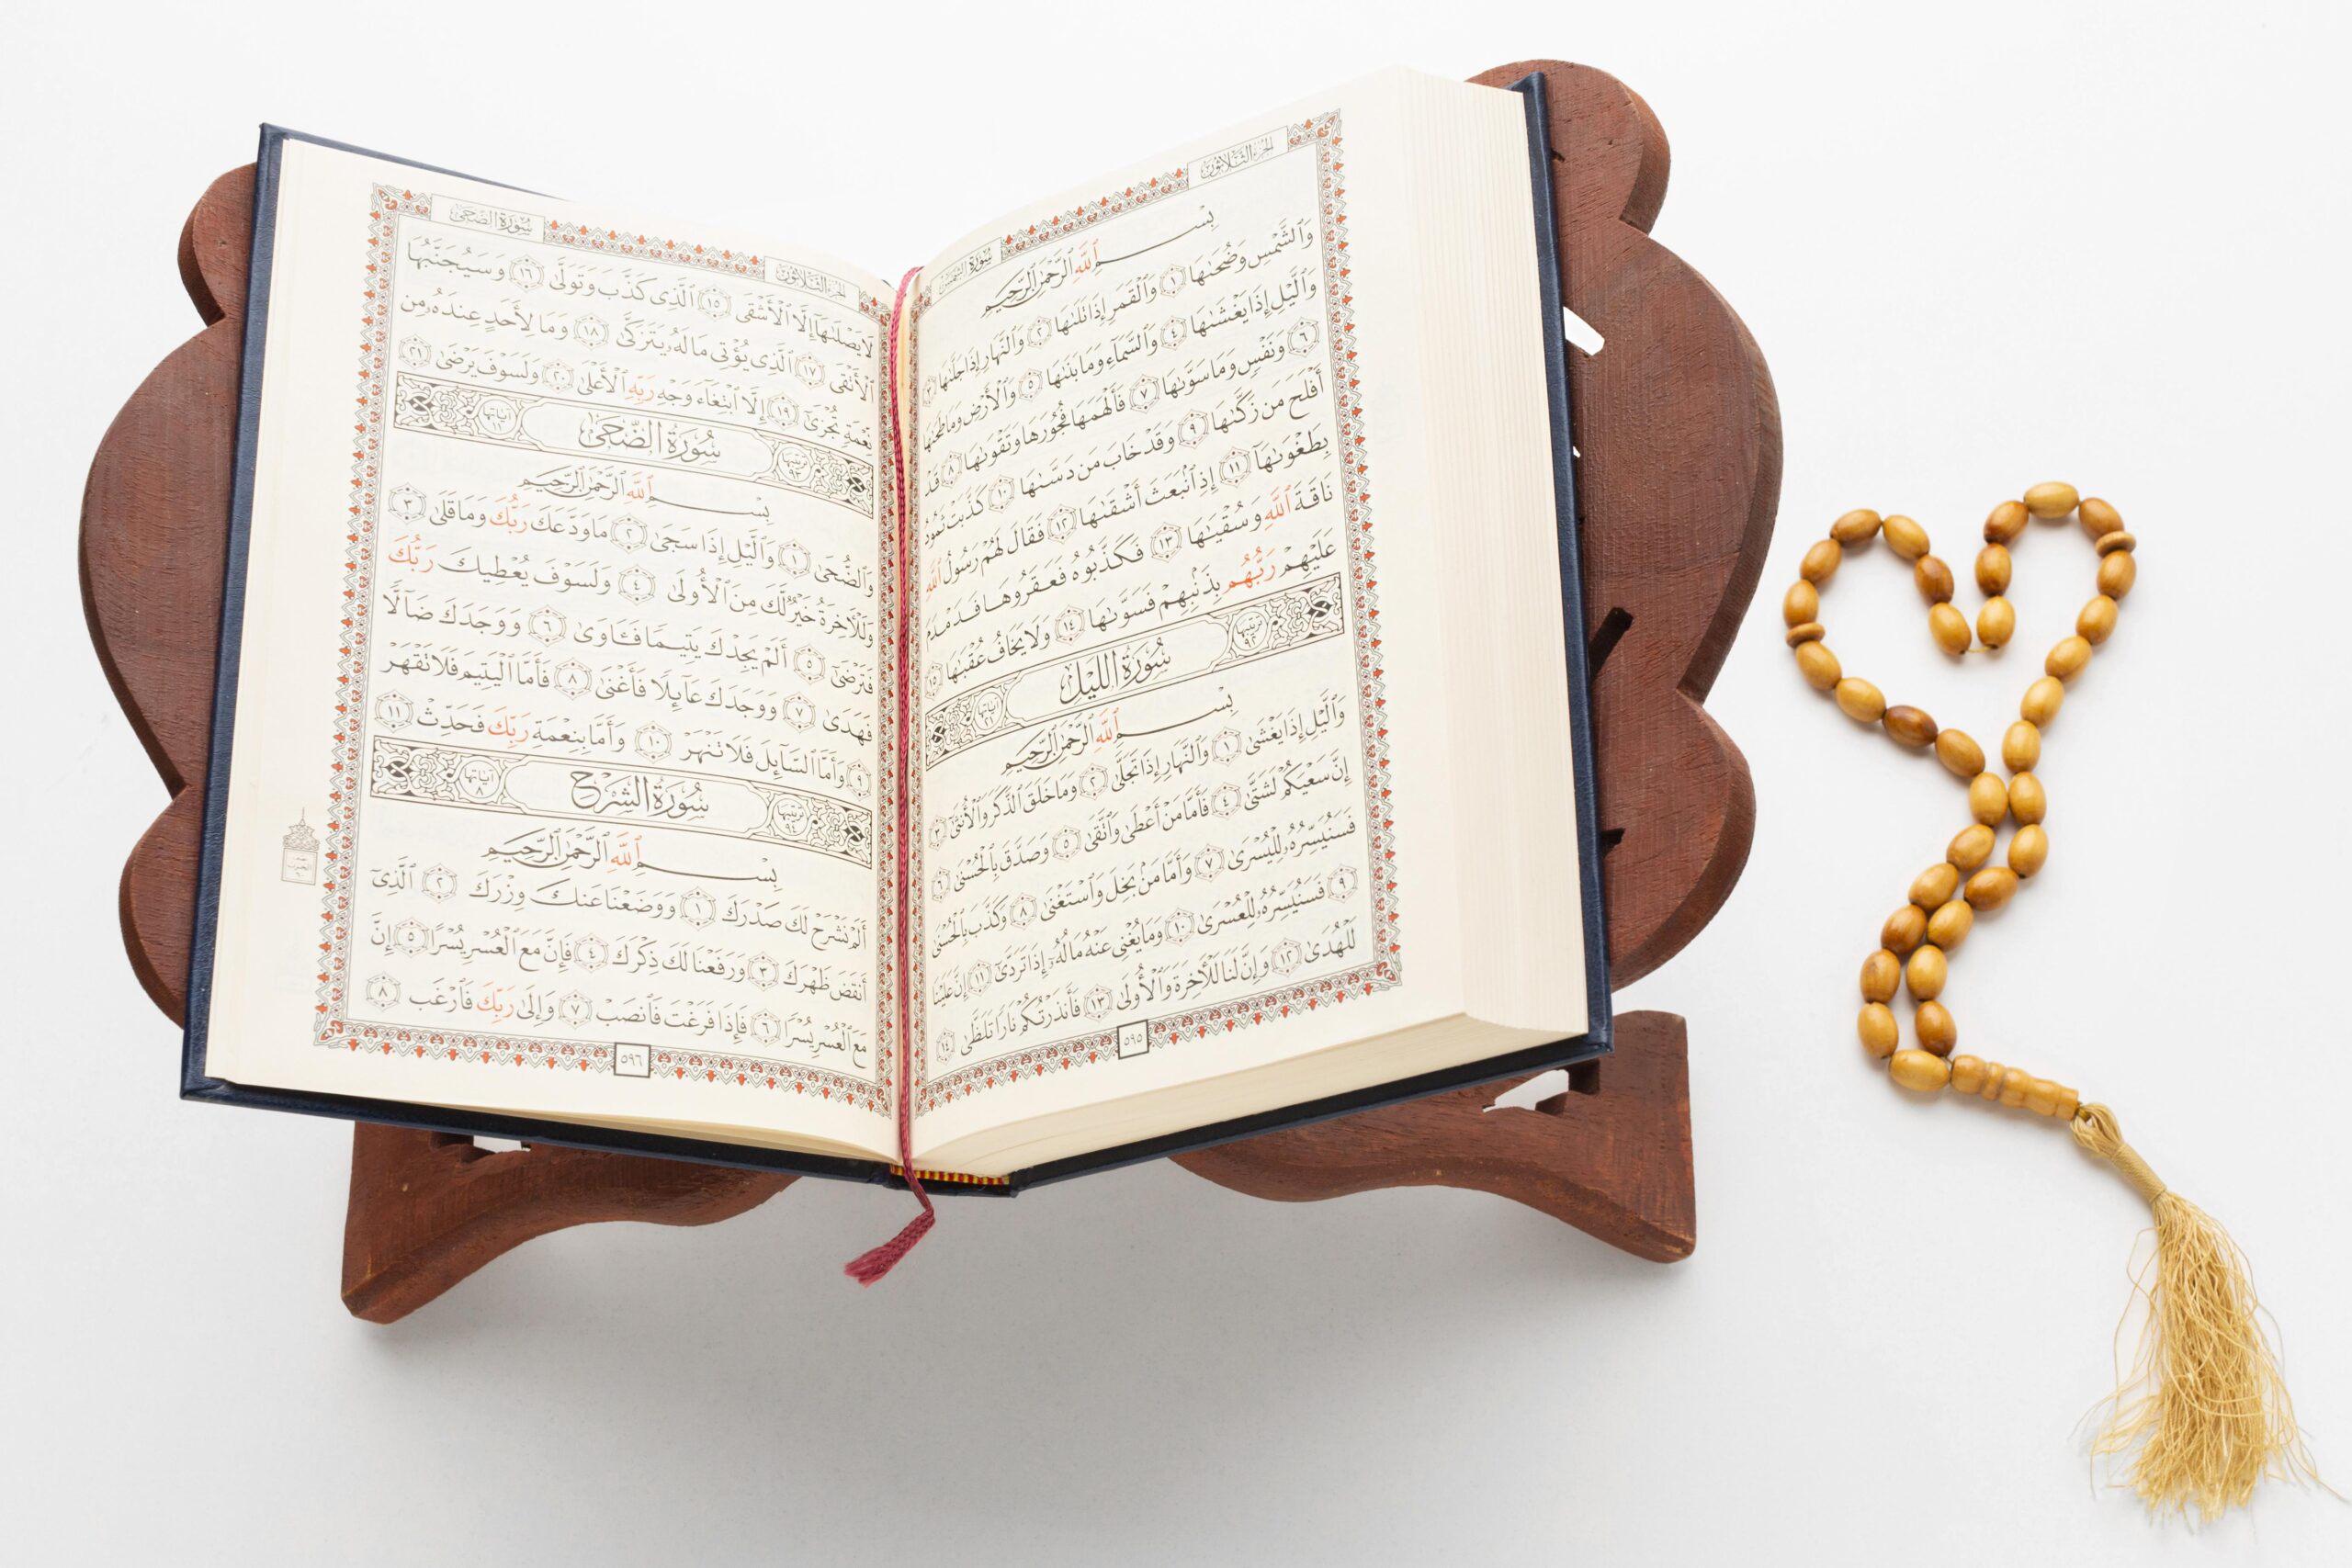 الجزء الثلاثون
سورة الشمس
بسم الله الرحمن الرحيم
وَٱلشَّمْسِ وَضُحَىٰهَا ١ وَٱلْقَمَرِ إِذَا تَلَىٰهَا ٢ وَٱلنَّهَارِ إِذَا جَلَّىٰهَا ٣
وَٱلَّيْلِ إِذَا يَغْشَىٰهَا ٤ وَٱلسَّمَآءِ وَمَا بَنَىٰهَا ٥ وَٱلْأَرْضِ وَمَا طَحَىٰهَا
٦ وَنَفْسٍ وَمَا سَوَّىٰهَا ٧ فَأَلْهَمَهَا فُجُورَهَا وَتَقْوَىٰهَا ٨ قَدْ
أَفْلَحَ مَن زَكَّىٰهَا ٩ وَقَدْ خَابَ مَن دَسَّىٰهَا ١٠ كَذَّبَتْ ثَمُودُ
بِطَغْوَىٰهَآ ١١ إِذِ ٱنۢبَعَثَ أَشْقَىٰهَا ١٢ فَقَالَ لَهُمْ رَسُولُ ٱللَّهِ
نَاقَةَ ٱللَّهِ وَسُقْيَىٰهَا ١٣ فَكَذَّبُوهُ فَعَقَرُوهَا فَدَمْدَمَ
عَلَيْهِمْ رَبُّهُم بِذَنۢبِهِمْ فَسَوَّىٰهَا ١٤ وَلَا يَخَافُ عُقْبَىٰهَا ١٥
ترتيبها ٩٢ سُورَةُ اللَّيْلِ آياتها ٢١
بسم الله الرحمن الرحيم
وَٱلَّيْلِ إِذَا يَغْشَىٰ ١ وَٱلنَّهَارِ إِذَا تَجَلَّىٰ ٢ وَمَا خَلَقَ ٱلذَّكَرَ وَٱلْأُنثَىٰٓ ٣
إِنَّ سَعْيَكُمْ لَشَتَّىٰ ٤ فَأَمَّا مَنْ أَعْطَىٰ وَٱتَّقَىٰ ٥ وَصَدَّقَ بِٱلْحُسْنَىٰ ٦
فَسَنُيَسِّرُهُۥ لِلْيُسْرَىٰ ٧ وَأَمَّا مَنۢ بَخِلَ وَٱسْتَغْنَىٰ ٨ وَكَذَّبَ بِٱلْحُسْنَىٰ
٩ فَسَنُيَسِّرُهُۥ لِلْعُسْرَىٰ ١٠ وَمَا يُغْنِى عَنْهُ مَالُهُۥٓ إِذَا تَرَدَّىٰٓ ١١ إِنَّ عَلَيْنَا
لَلْهُدَىٰ ١٢ وَإِنَّ لَنَا لَلْأَخِرَةَ وَٱلْأُولَىٰ ١٣ فَأَنذَرْتُكُمْ نَارًا تَلَظَّىٰ ١٤
٥٩٥
الجزء الثلاثون
سورة الضحى
لَا يَصْلَىٰهَآ إِلَّا ٱلْأَشْقَى ١٥ ٱلَّذِى كَذَّبَ وَتَوَلَّىٰ ١٦ وَسَيُجَنَّبُهَا
ٱلْأَتْقَى ١٧ ٱلَّذِى يُؤْتِى مَالَهُۥ يَتَزَكَّىٰ ١٨ وَمَا لِأَحَدٍ عِندَهُۥ مِن
نِّعْمَةٍ تُجْزَىٰٓ ١٩ إِلَّا ٱبْتِغَآءَ وَجْهِ رَبِّهِ ٱلْأَعْلَىٰ ٢٠ وَلَسَوْفَ يَرْضَىٰ ٢١
ترتيبها ٩٣ سُورَةُ الضُّحَىٰ آياتها ١١
بسم الله الرحمن الرحيم
وَٱلضُّحَىٰ ١ وَٱلَّيْلِ إِذَا سَجَىٰ ٢ مَا وَدَّعَكَ رَبُّكَ وَمَا قَلَىٰ ٣
وَلَلْأَخِرَةُ خَيْرٌ لَّكَ مِنَ ٱلْأُولَىٰ ٤ وَلَسَوْفَ يُعْطِيكَ رَبُّكَ
فَتَرْضَىٰٓ ٥ أَلَمْ يَجِدْكَ يَتِيمًا فَـَٔاوَىٰ ٦ وَوَجَدَكَ ضَآلًّا
فَهَدَىٰ ٧ وَوَجَدَكَ عَآئِلًا فَأَغْنَىٰ ٨ فَأَمَّا ٱلْيَتِيمَ فَلَا تَقْهَرْ
٩ وَأَمَّا ٱلسَّآئِلَ فَلَا تَنْهَرْ ١٠ وَأَمَّا بِنِعْمَةِ رَبِّكَ فَحَدِّثْ ١١
ترتيبها ٩٤ سُورَةُ الشَّرْحِ آياتها ٨
بسم الله الرحمن الرحيم
أَلَمْ نَشْرَحْ لَكَ صَدْرَكَ ١ وَوَضَعْنَا عَنكَ وِزْرَكَ ٢ ٱلَّذِىٓ
أَنقَضَ ظَهْرَكَ ٣ وَرَفَعْنَا لَكَ ذِكْرَكَ ٤ فَإِنَّ مَعَ ٱلْعُسْرِ يُسْرًا ٥ إِنَّ
مَعَ ٱلْعُسْرِ يُسْرًا ٦ فَإِذَا فَرَغْتَ فَٱنصَبْ ٧ وَإِلَىٰ رَبِّكَ فَٱرْغَب ٨
٥٩٦